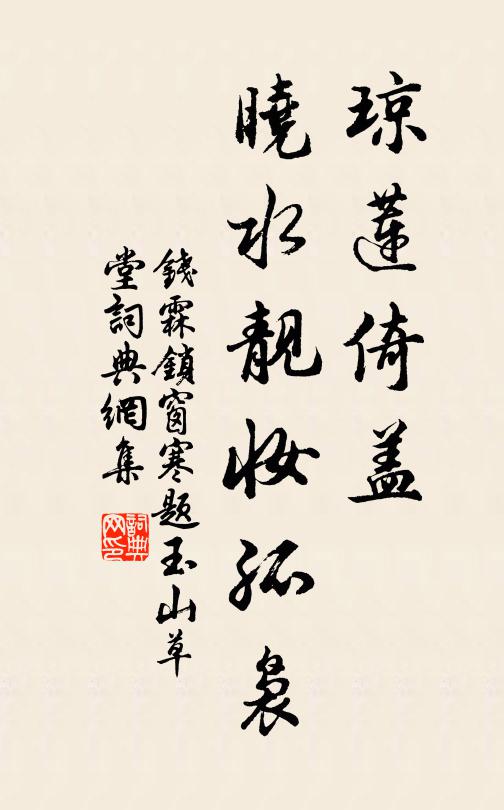 琼莲倚盖
晓水靓妆孤袅
钱霖鎖窗寒题玉山草
堂詞典網集
詞典网印